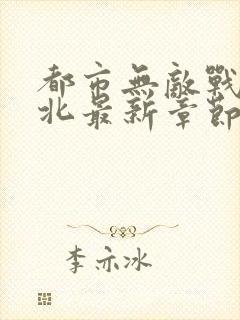 都市無敵戰
北最新章節
李亦冰